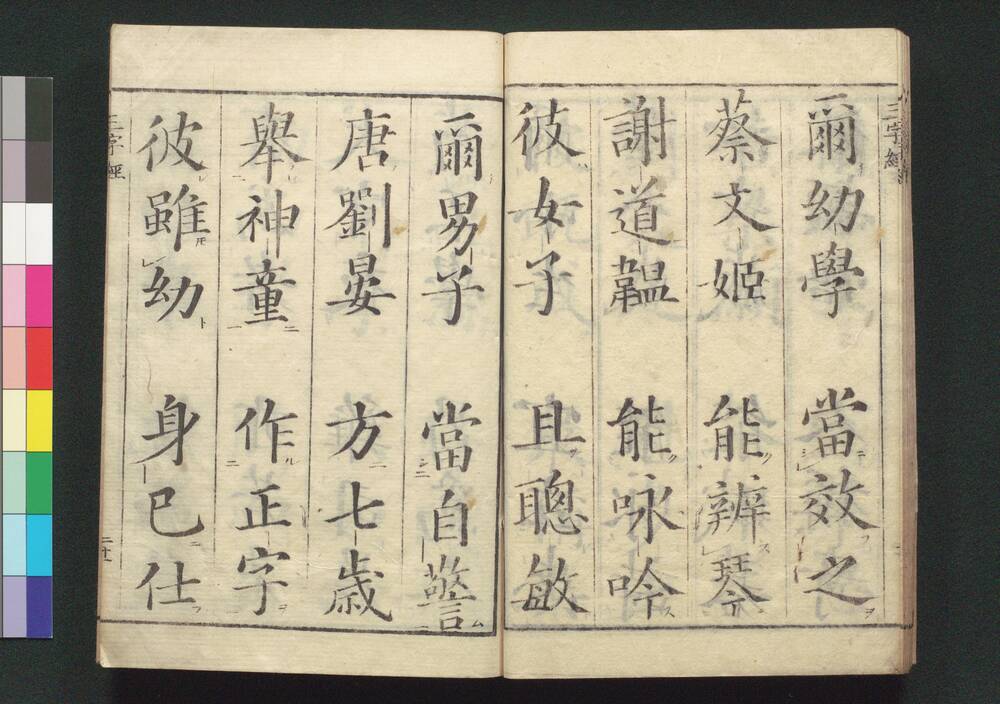 三字經
爾幼學 當效之
蔡文姬 能辨琴
謝道韞 能咏吟
彼女子 且聰敏
爾男子 當自警
唐劉晏 方七歳
舉神童 作正字
彼雖幼 身已仕
三字經